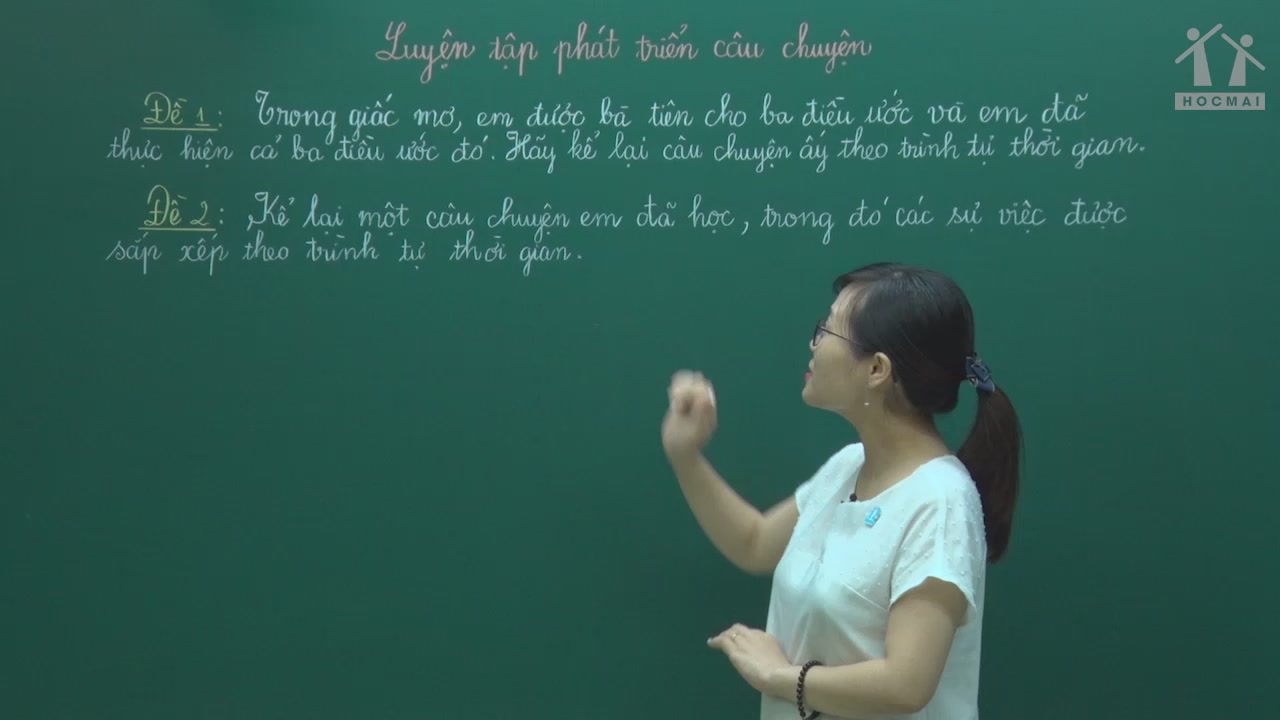 Luyện tập phát triển câu chuyện
HOCMAI
Đề 1: Trong giấc mơ, em được bà tiên cho ba điều ước và em đã
thực hiện cả ba điều ước đó. Hãy kể lại câu chuyện ấy theo trình tự thời gian.
Đề 2: Kể lại một câu chuyện em đã học, trong đó các sự việc được
sắp xếp theo trình tự thời gian.